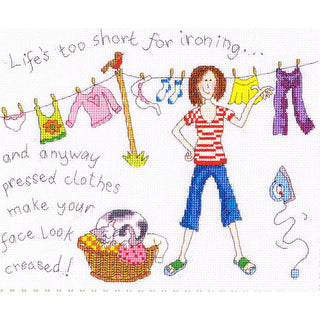 Life's too short for ironing...
and anyway
pressed clothes
make your
face look
creased!